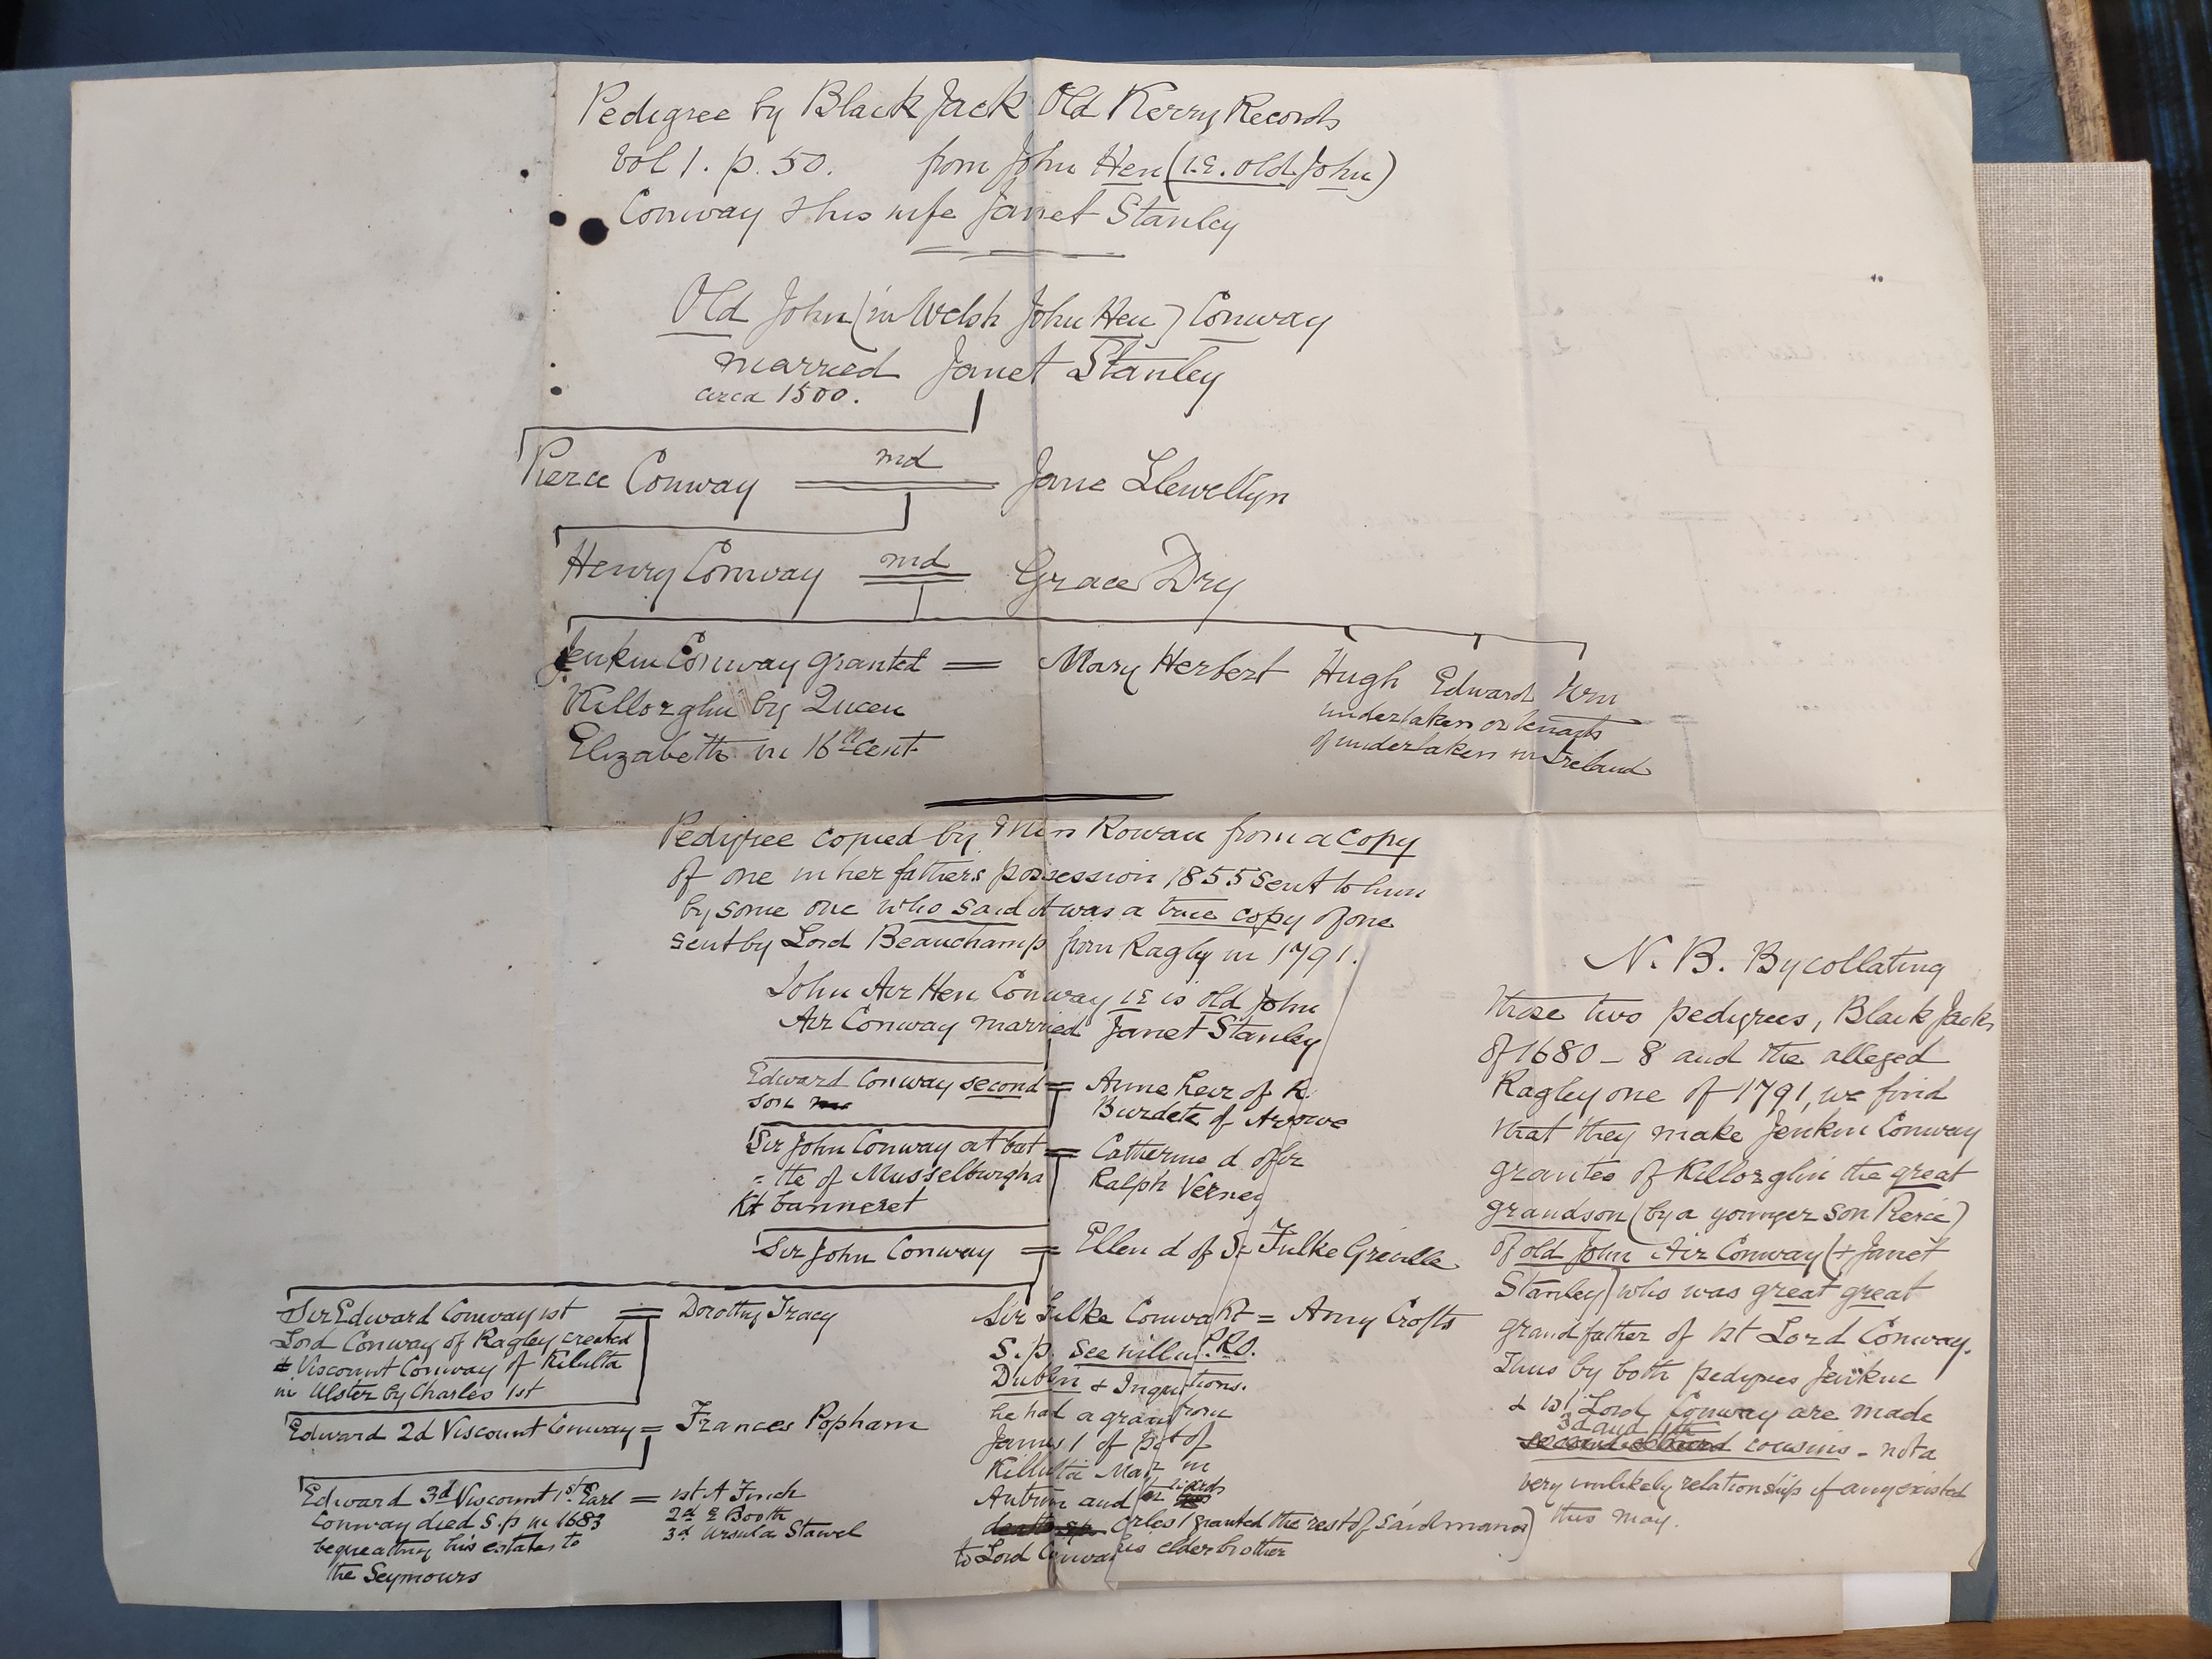 Pedigree by Black Jack Old Kerry Records
Vol 1. p. 50. from John Hen (i.e. old John)
Conway & his wife Janet Stanley
Old John (in Welsh John Hen) Conway
married Janet Stanley
circa 1500.
Pierce Conway md Jane Llewellyn
Henry Conway md Grace Dry
Jenkin Conway granted = Mary Herbert Hugh Edward Wm
Killorglin by Queen
Elizabeth in 16th cent
undertakers or tenants
of undertakers in Ireland
Pedigree copied by Miss Rowan from a copy
of one in her fathers possession 1855 sent to him
by some one who said it was a true copy of one
sent by Lord Beauchamp from Ragley in 1791.
John Aer Hen Conway ie is old John
Aer Conway married Janet Stanley
Edward Conway second = Anne heir of R.
son
Burdete of Arowe
Sir John Conway at bat = Catherine d of Sr
-tle of Musselburgh a
Ralph Verney
Kt banneret
Sir John Conway = Ellen d of Sr Fulke Greville
Sir Edward Conway 1st = Dorothy Tracy
Lord Conway of Ragley created
Viscount Conway of Kilulta
in Ulster by Charles 1st
Edward 2d Viscount Conway = Frances Popham
Edward 3d Viscount 1st Earl = 1st A Finch
Conway died S.p in 1683
2d E Booth
bequeathing his estates to
3d Ursula Stawel
the Seymours
Sir Fulke Conway Kt = Amy Crofts
S.p. See will in P.R.O.
Dublin & Inquisitions.
he had a grant from
James 1 of part of
Killulta Manr in
Antrim and
Charles 1 granted the rest of said manor)
to Lord Conway his elder brother
N.B. By collating
these two pedigrees, Black Jacks
of 1680-8 and the alleged
Ragley one of 1791, we find
that they make Jenkin Conway
grantee of Killorglin the great
grandson (by a younger son Pierce)
of old John Aer Conway (& Janet
Stanley) who was great great
grandfather of 1st Lord Conway.
Thus by both pedigrees Jenkin
& 1st Lord Conway are made
3d and 4th
cousins - not a
very unlikely relationship if any existed
this may.